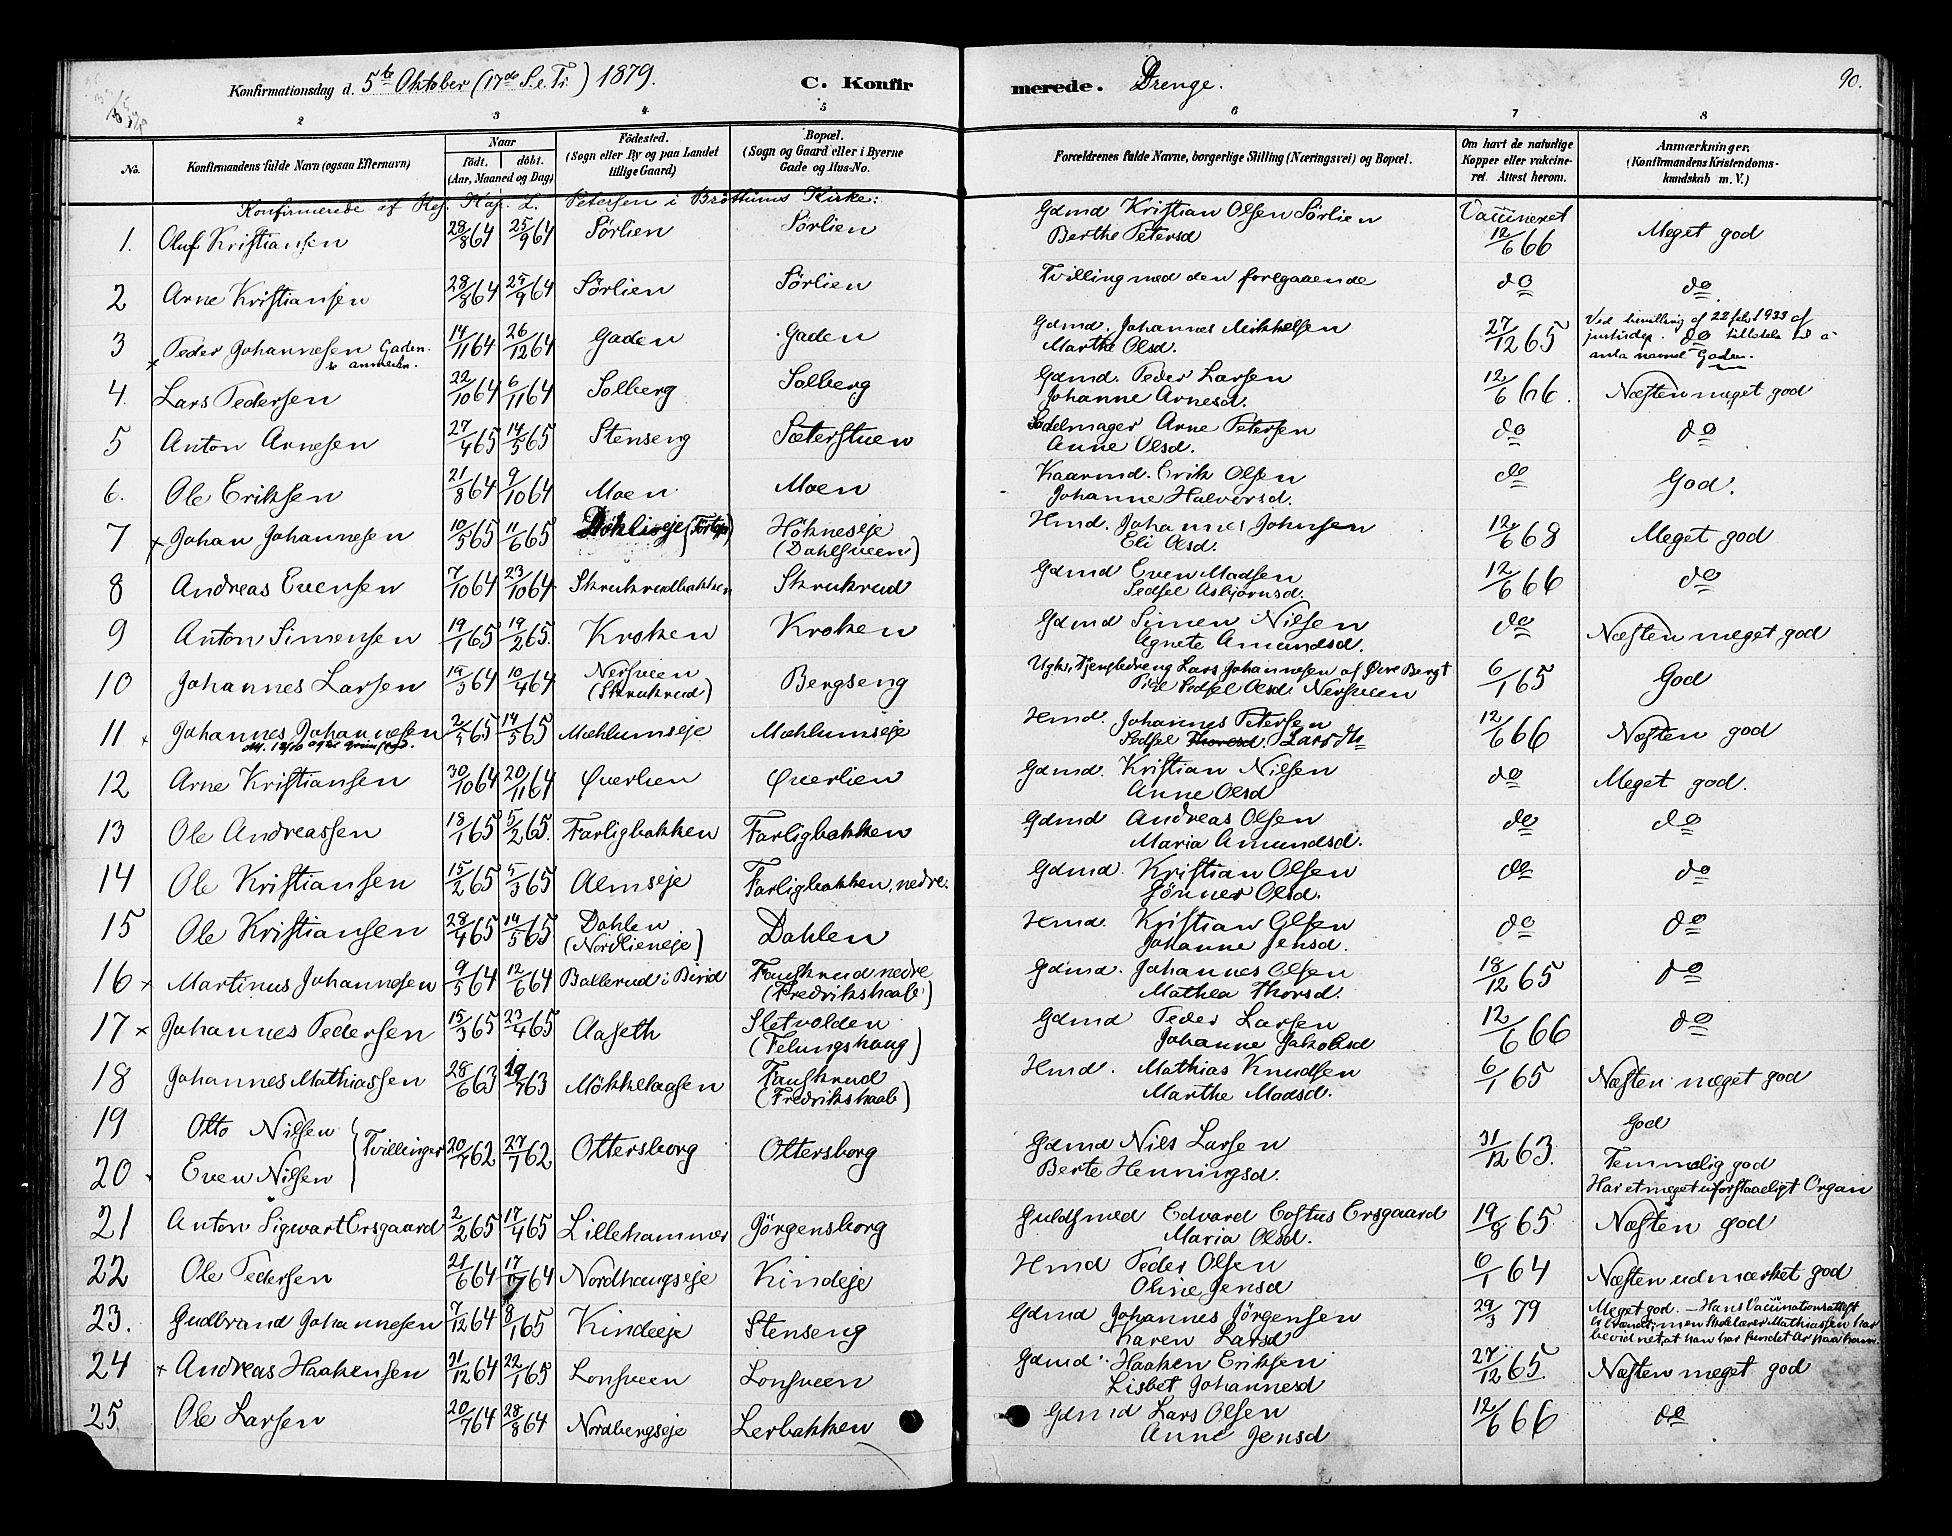 Konfirmationsdag d. 5te Oktober (17de S. e. Tr.) 1879. C. Konfirmerede. Drenge. 90.
2 3 4 5 6 7 8
No. Konfirmandens fulde Navn (ogsaa Efternavn) Naar födt. döbt. (Aar, Maaned og Dag) Födested. (Sogn eller By og paa Landet tillige Gaard) Bopæl. (Sogn og Gaard eller i Byerne Gade og Hus-No. Forældrenes fulde Navne, borgerlige Stilling (Næringsvei) og Bopæl. Om havt de naturlige Kopper eller vakcineret. Attest herom. Anmærkninger. (Konfirmandens Kristendomskundskab m. V.)
Konfirmerede af Res. Kap. L. Petersen i Brøttums Kirke:
1. Oluf Kristiansen 28/8 64 25/9 64 Sörlien Sörlien Gdmd Kristian Olsen Sörlien Vaccineret
Berthe Petersd 12/6 66 Meget god
2 Arne Kristiansen 28/8 64 25/9 64 Sörlien Sörlien Tvilling med den foregaaende do do
3 Peder Johannesen Gaden. 14/11 64 26/12 64 Gaden Gaden Gdmd. Johannes Mikkelsen 27/12 65 Ved bevilling af 22 feb. 1933 af
x se anmerkn. Marthe Olsd. justisdep. do tilladelse til å
anta navnet Gaden.
4. Lars Pedersen 22/10 64 6/11 64 Solberg Solberg Gdmd. Peder Larsen 12/6 66. Næsten meget god
Johanne Arnesd.
5 Anton Arnesen 27/4 65 14/5 65 Stenseng Sæterstuen Sadelmager Arne Petersen do do
Anne Olsd.
6. Ole Eriksen 21/8 64 9/10 64 Moen Moen Kaarmd. Erik Olsen do God.
Johanne Halvorsd.
7 x Johan Johannesen 10/5 65 11/6 65 Höhneseje Hmd. Johannes Johnsen 12/6 68 Meget god
(Dahlsveen) Eli Olsd.
8 Andreas Evensen 7/10 64 23/10 64 Skrukrudbakken Skrukrud Gdmd Even Madsen 12/6 66 do
Sedsel Asbjørnsd.
9 Anton Simensen 19/1 65 19/2 65. Kroken Kroken Gdmd Simen Nilsen do Næsten meget god
Agnete Amundsd.
10 Johannes Larsen 19/3 64 10/4 64 Nersveen Bergseng Ugkr, Tjenstedreng Lars Johannesen af Øvre Bergs 6/1 65 God
(Skrukrud) Pige Sedsel Olsd. Nersveen
11 x Johannes Johannesen 2/4 65 14/5 65 Mæhlumseje Mæhlumseje Hmd. Johannes Petersen 12/6 66 Næsten god
Sedsel Thoresd Larsdtr
12 Arne Kristiansen 30/10 64 20/11 64 Qverlien Qverlien Gdmd. Kristian Nilsen do Meget god.
Anne Olsd
13 Ole Andreassen 18/1 65 5/2 65. Farligbakken Farligbakken Gdmd Andreas Olsen do do
Maria Amundsd.
14 Ole Kristiansen 15/2 65 5/3 65 Almseje Farligbakken, nedre. Gdmd. Kristian Olsen do do
Gönner Olsd.
15 Ole Kristiansen 28/4 65 14/5 65 Dahlen Dahlen Hmd. Kristian Olsen do do
(Nordlieneje) Johanne Jensd.
16 x Martinus Johannesen 9/5 64 12/6 64 Ballerud i Birid Fauskrud nedre Gdmd. Johannes Olsen 18/12 65 do
(Fredrikshaab) Mathea Thorsd.
17 x Johannes Pedersen 15/3 65 23/4 65 Aaseth Sletvolden Gdmd Peder Larsen 12/6 66 do
(Felungshaug) Johanne Jakobsd
18 Johannes Mathiassen 28/6 63 19/7 63 Mökkelaasen Fauskrud Hmd. Mathias Knudsen 6/1 65 Næsten meget god
(Fredrikshaab) Marthe Madsd.
19 Otto Nilsen God
Tvillinger 20/7 62 27/7 62 Ottersborg Ottersborg Gdmd Nils Larsen 31/12 63.
20 Even Nilsen Berte Henningsd. Temmelig god
Har et meget uforstaaeligt Organ
21 Anton Sigwart Ersgaard 2/2 65 17/4 65 Lillehammer Jörgensborg Guldsmed Edvard Costus Ersgaard 19/8 65 Næsten god
Maria Olsd.
22 Ole Pedersen 21/6 64 17/7 64 Nordhaugseje Kindeje Hmd Peder Olsen 6/1 64 Næsten udmærket god
Oline Jensd
23. Gudbrand Johannesen 7/12 64 8/1 65 Kindeeje Stenseng Gdmd Johannes Jörgensen 29/3 79 Meget god. – Hans Vaccinationsattest
Karen Larsd er brændt, men Skolelærer Mathiassen har
bevidnet, at han har fundet Ar paa ham.
24 x Andreas Haakensen 31/12 64 22/1 65 Lonsveen Lonsveen Gdmd Haaken Eriksen 27/12 65. Næsten meget god
Lisbet Johannesd
25. Ole Larsen 20/7 64 28/8 64 Nordbergseje Lerbakken Gdmd Lars Olsen 12/6 66 do
Anne Jensd